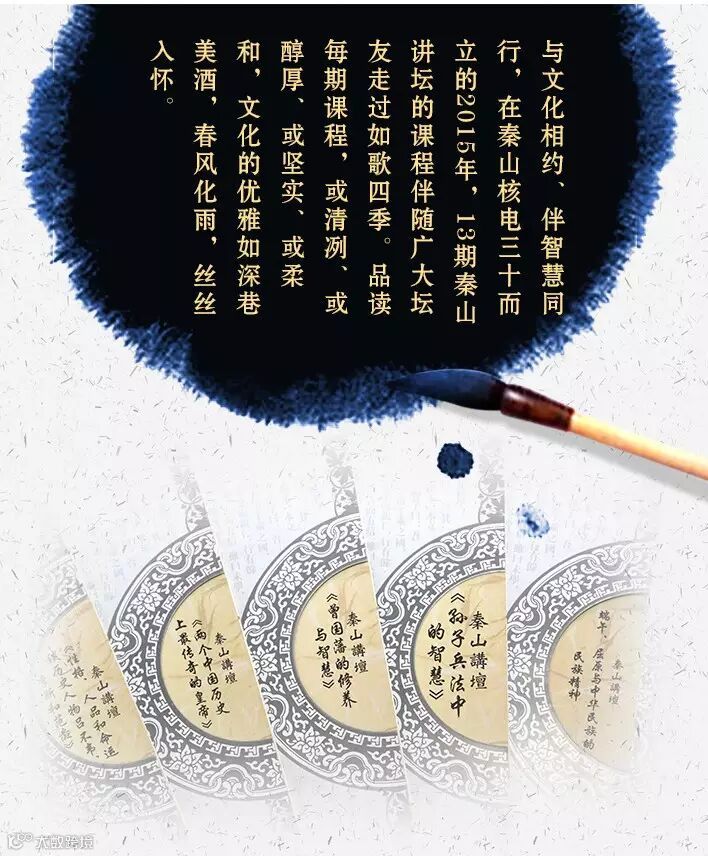 与文化相约、伴智慧同
行，在秦山核电三十而
立的2015年，13期秦山
讲坛的课程伴随广大坛
友走过如歌四季。品读
每期课程，或清冽、或
醇厚、或坚实、或柔
和，文化的优雅如深巷
美酒，春风化雨，丝丝
入怀。
秦山講壇
端午、屈原与中华民族的
民族精神
秦山講壇
《孙子兵法中
的智慧》
秦山講壇
《曾国藩的修养
与智慧》
秦山講壇
《两个中国历史
上最传奇的皇帝》
秦山講壇
人品和命运
历史人物吕不韦
大数跨境